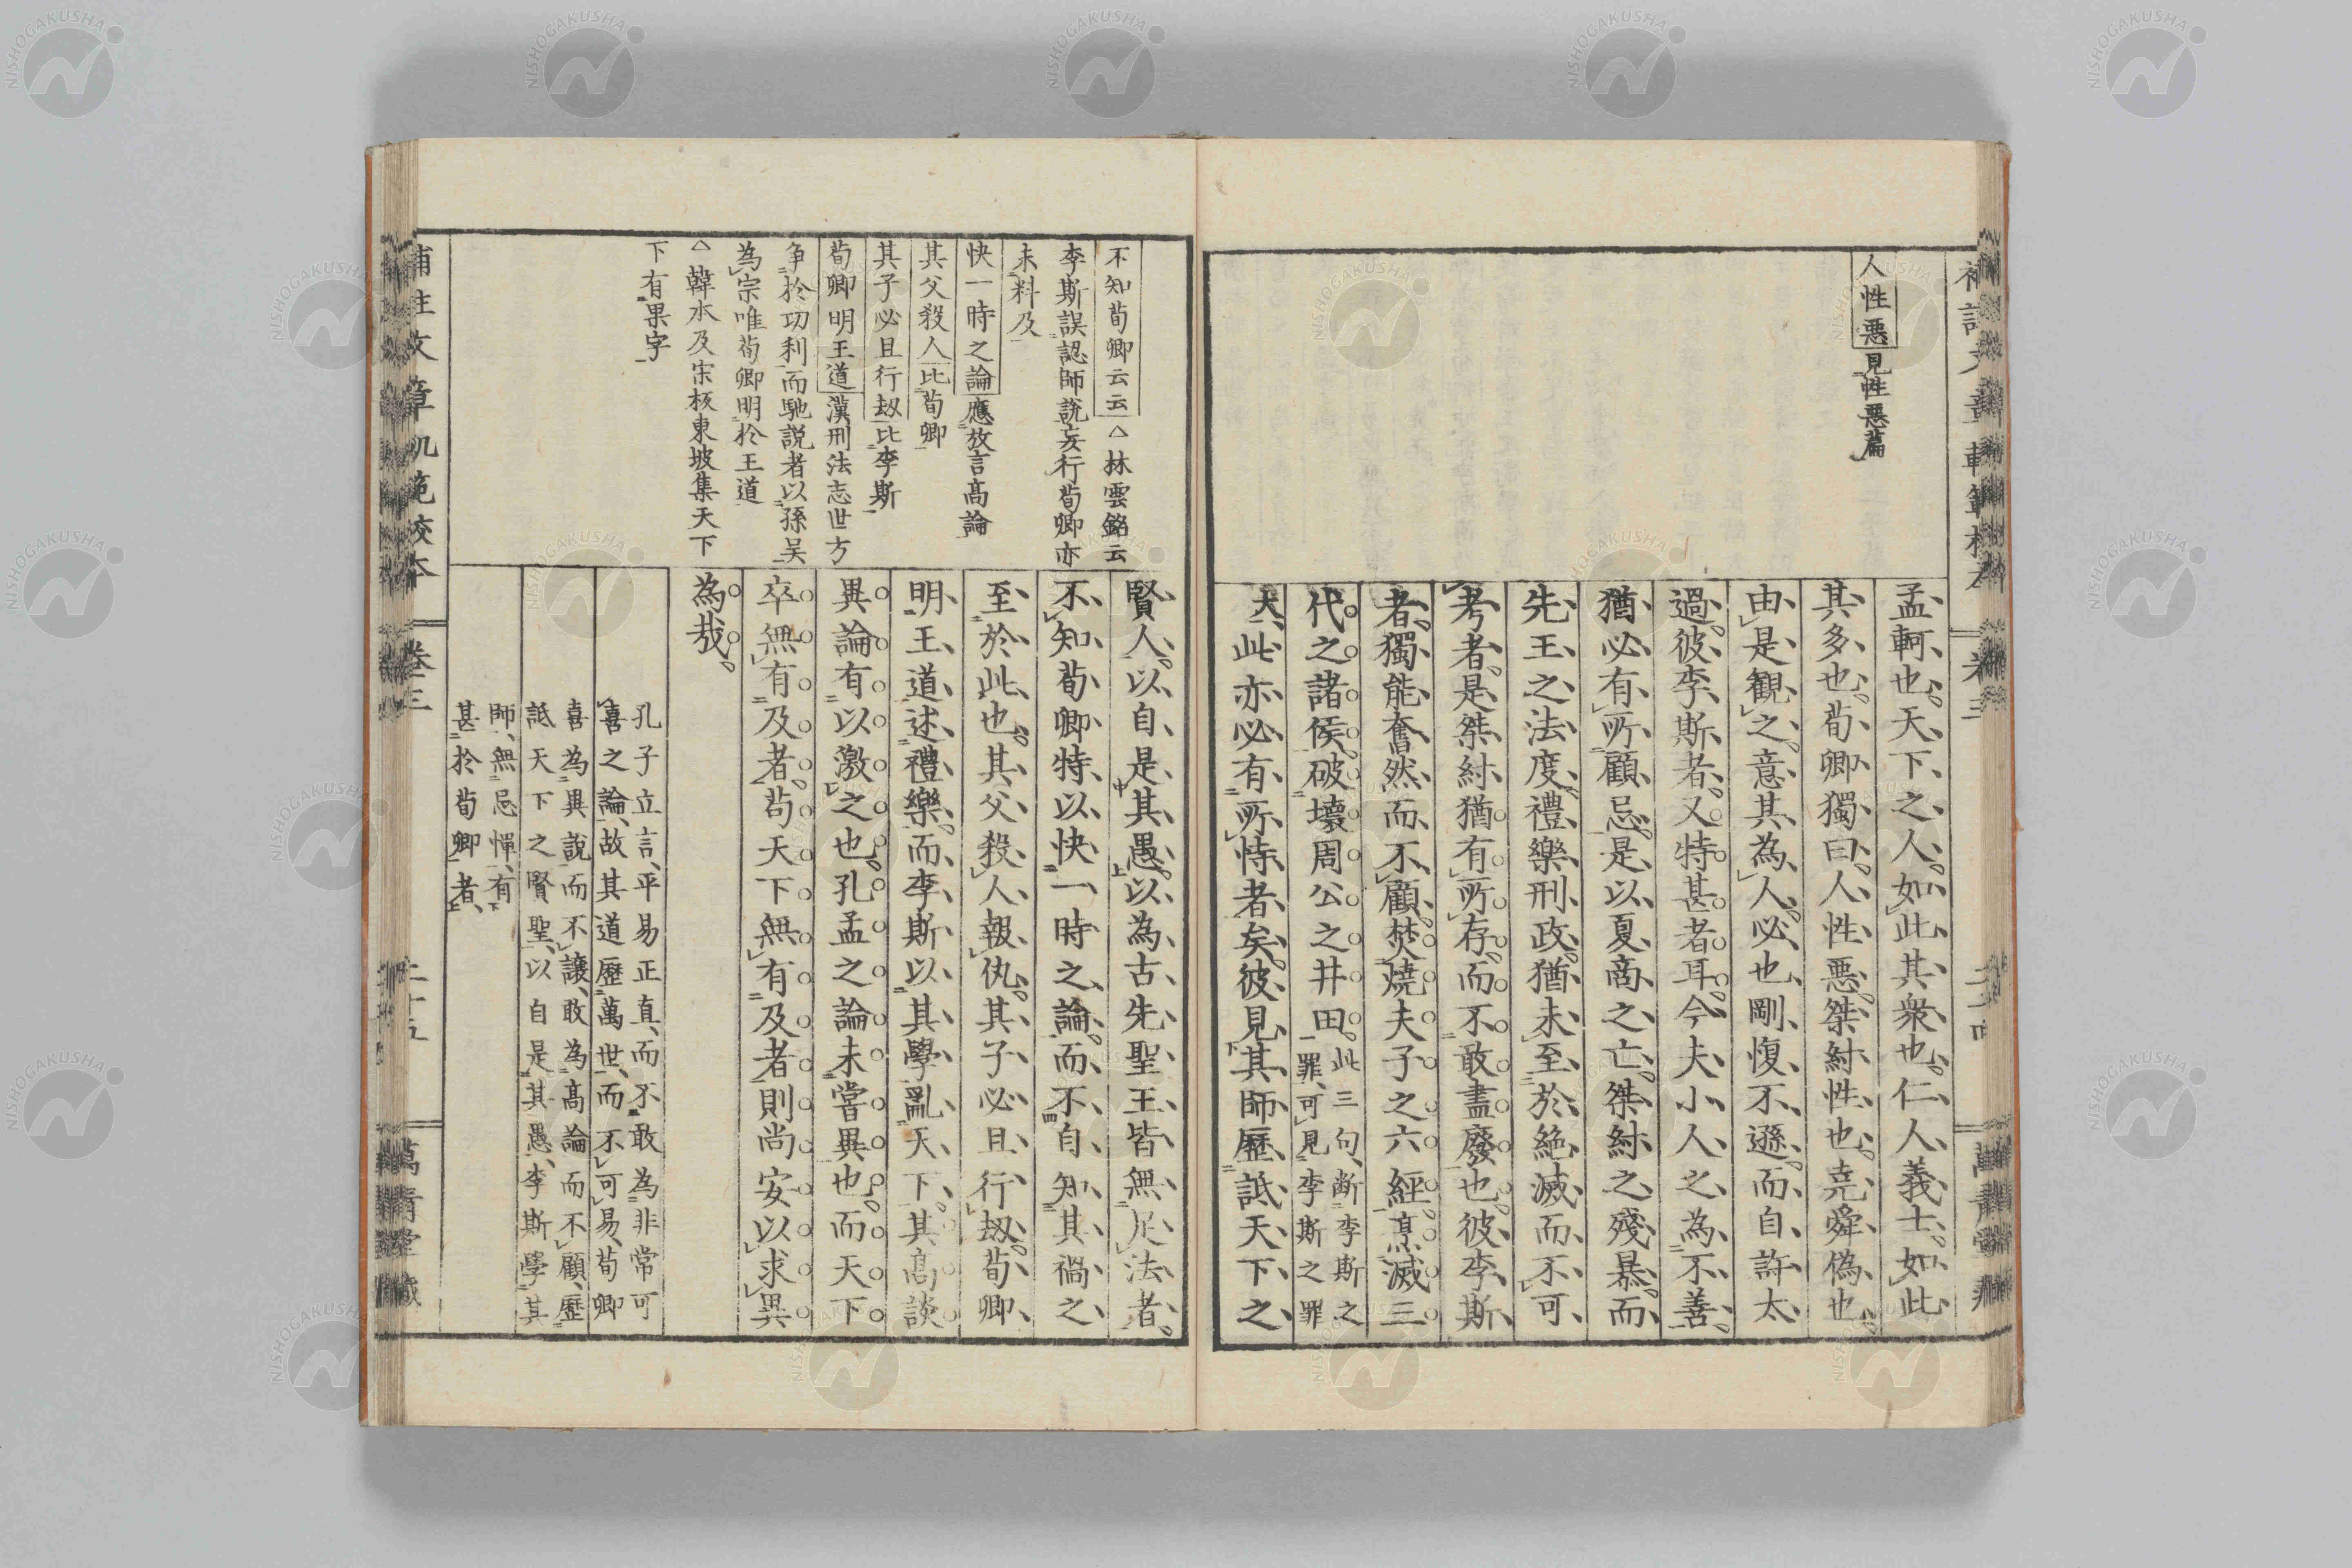 人性惡見性惡篇
孟軻也天下之人如此其衆也仁人義士如此
其多也荀卿獨曰人性惡桀紂性也堯舜偽也
由是觀之意其為人必也剛愎不遜而自許太
過彼李斯者又特甚者耳今夫小人之為不善
猶必有所顧忌是以夏商之亡桀紂之殘暴而
先王之法度禮樂刑政猶未至於絶滅而不可
考者是桀紂猶有所存而不敢盡廢也彼李斯
者獨能奮然而不顧焚燒夫子之六經烹滅三
代之諸侯破壞周公之井田此三句斷李斯之
罪可見李斯之罪
大此亦必有所恃者矣彼見其師歷詆天下之
不知荀卿云云△林雲銘云
李斯誤認師說妄行荀卿亦
未料及
快一時之論應放言高論
其父殺人比荀卿
其子必且行劫比李斯
荀卿明王道漢刑法志世方
争於功利而馳説者以孫吴
為宗唯荀卿明於王道
△韓水及宋板東坡集天下
下有果字
賢人以自是其愚以為古先聖王皆無足法者
不知荀卿特以快一時之論而不自知其禍之
至於此也其父殺人報仇其子必且行劫荀卿
明王道述禮樂而李斯以其學亂天下其高談
異論有以激之也孔孟之論未嘗異也而天下
卒無有及者苟天下無有及者則尚安以求異
為哉
孔子立言平易正直而不敢為非常可
喜之論故其道歷萬世而不可易荀卿
喜為異說而不讓敢為高論而不顧歷
詆天下之賢聖以自是其愚李斯學其
師無忌憚有
甚於荀卿者
補註文章軌範校本 卷三 二十五
NISHOGAKUSHA